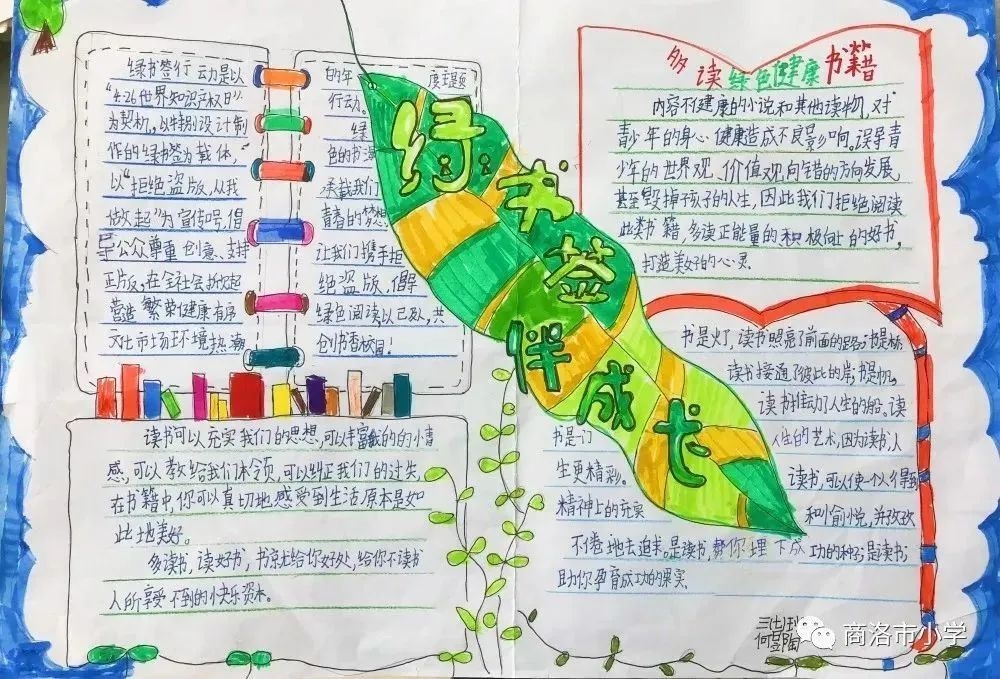 绿书签伴成长
绿书签行动是以
“4·26世界知识产权日”
为契机,以特别设计制
作的绿书签为载体,
以“拒绝盗版,从我
做起”为宣传号,倡
导公众尊重创意、支持
正版,在全社会掀起
营造繁荣健康有序
文化市场环境热潮
的年度主题
行动。
绿
色的书海
承载我们
青春的梦想
让我们携手拒
绝盗版,倡导
绿色阅读以已处,共
创书香校园!
多读绿色健康书籍
内容不健康的小说和其他读物,对
青少年的身心健康造成不良影响。误导青
少年的世界观、价值观向错的方向发展,
甚至毁掉了孩子的人生,因此我们拒绝阅读
此类书籍,多读正能量的积极向上的好书,
打造美好的心灵。
读书可以充实我们的思想,可以丰富我的的小情
感,可以教给我们本领,可以纠正我们的过失,
在书籍中,你可以真切地感受到生活原本是如
此地美好。
多读书,读好书,书就也给你好处,给你不读书
人所享受不到的快乐资本。
书是灯,读书照亮了前面的路;书是桥,
读书接通了彼此的岸;书是帆,
读书推动了人生的船。读
书是一门人生的艺术,因为读书,人
生更精彩。读书,可以使一个人得到
精神上的充实和愉悦,并孜孜
不倦地去追求。是读书,帮你埋下成功的种子;是读书,
助你孕育成功的果实
三(七)班
何昱陶
商洛市小学